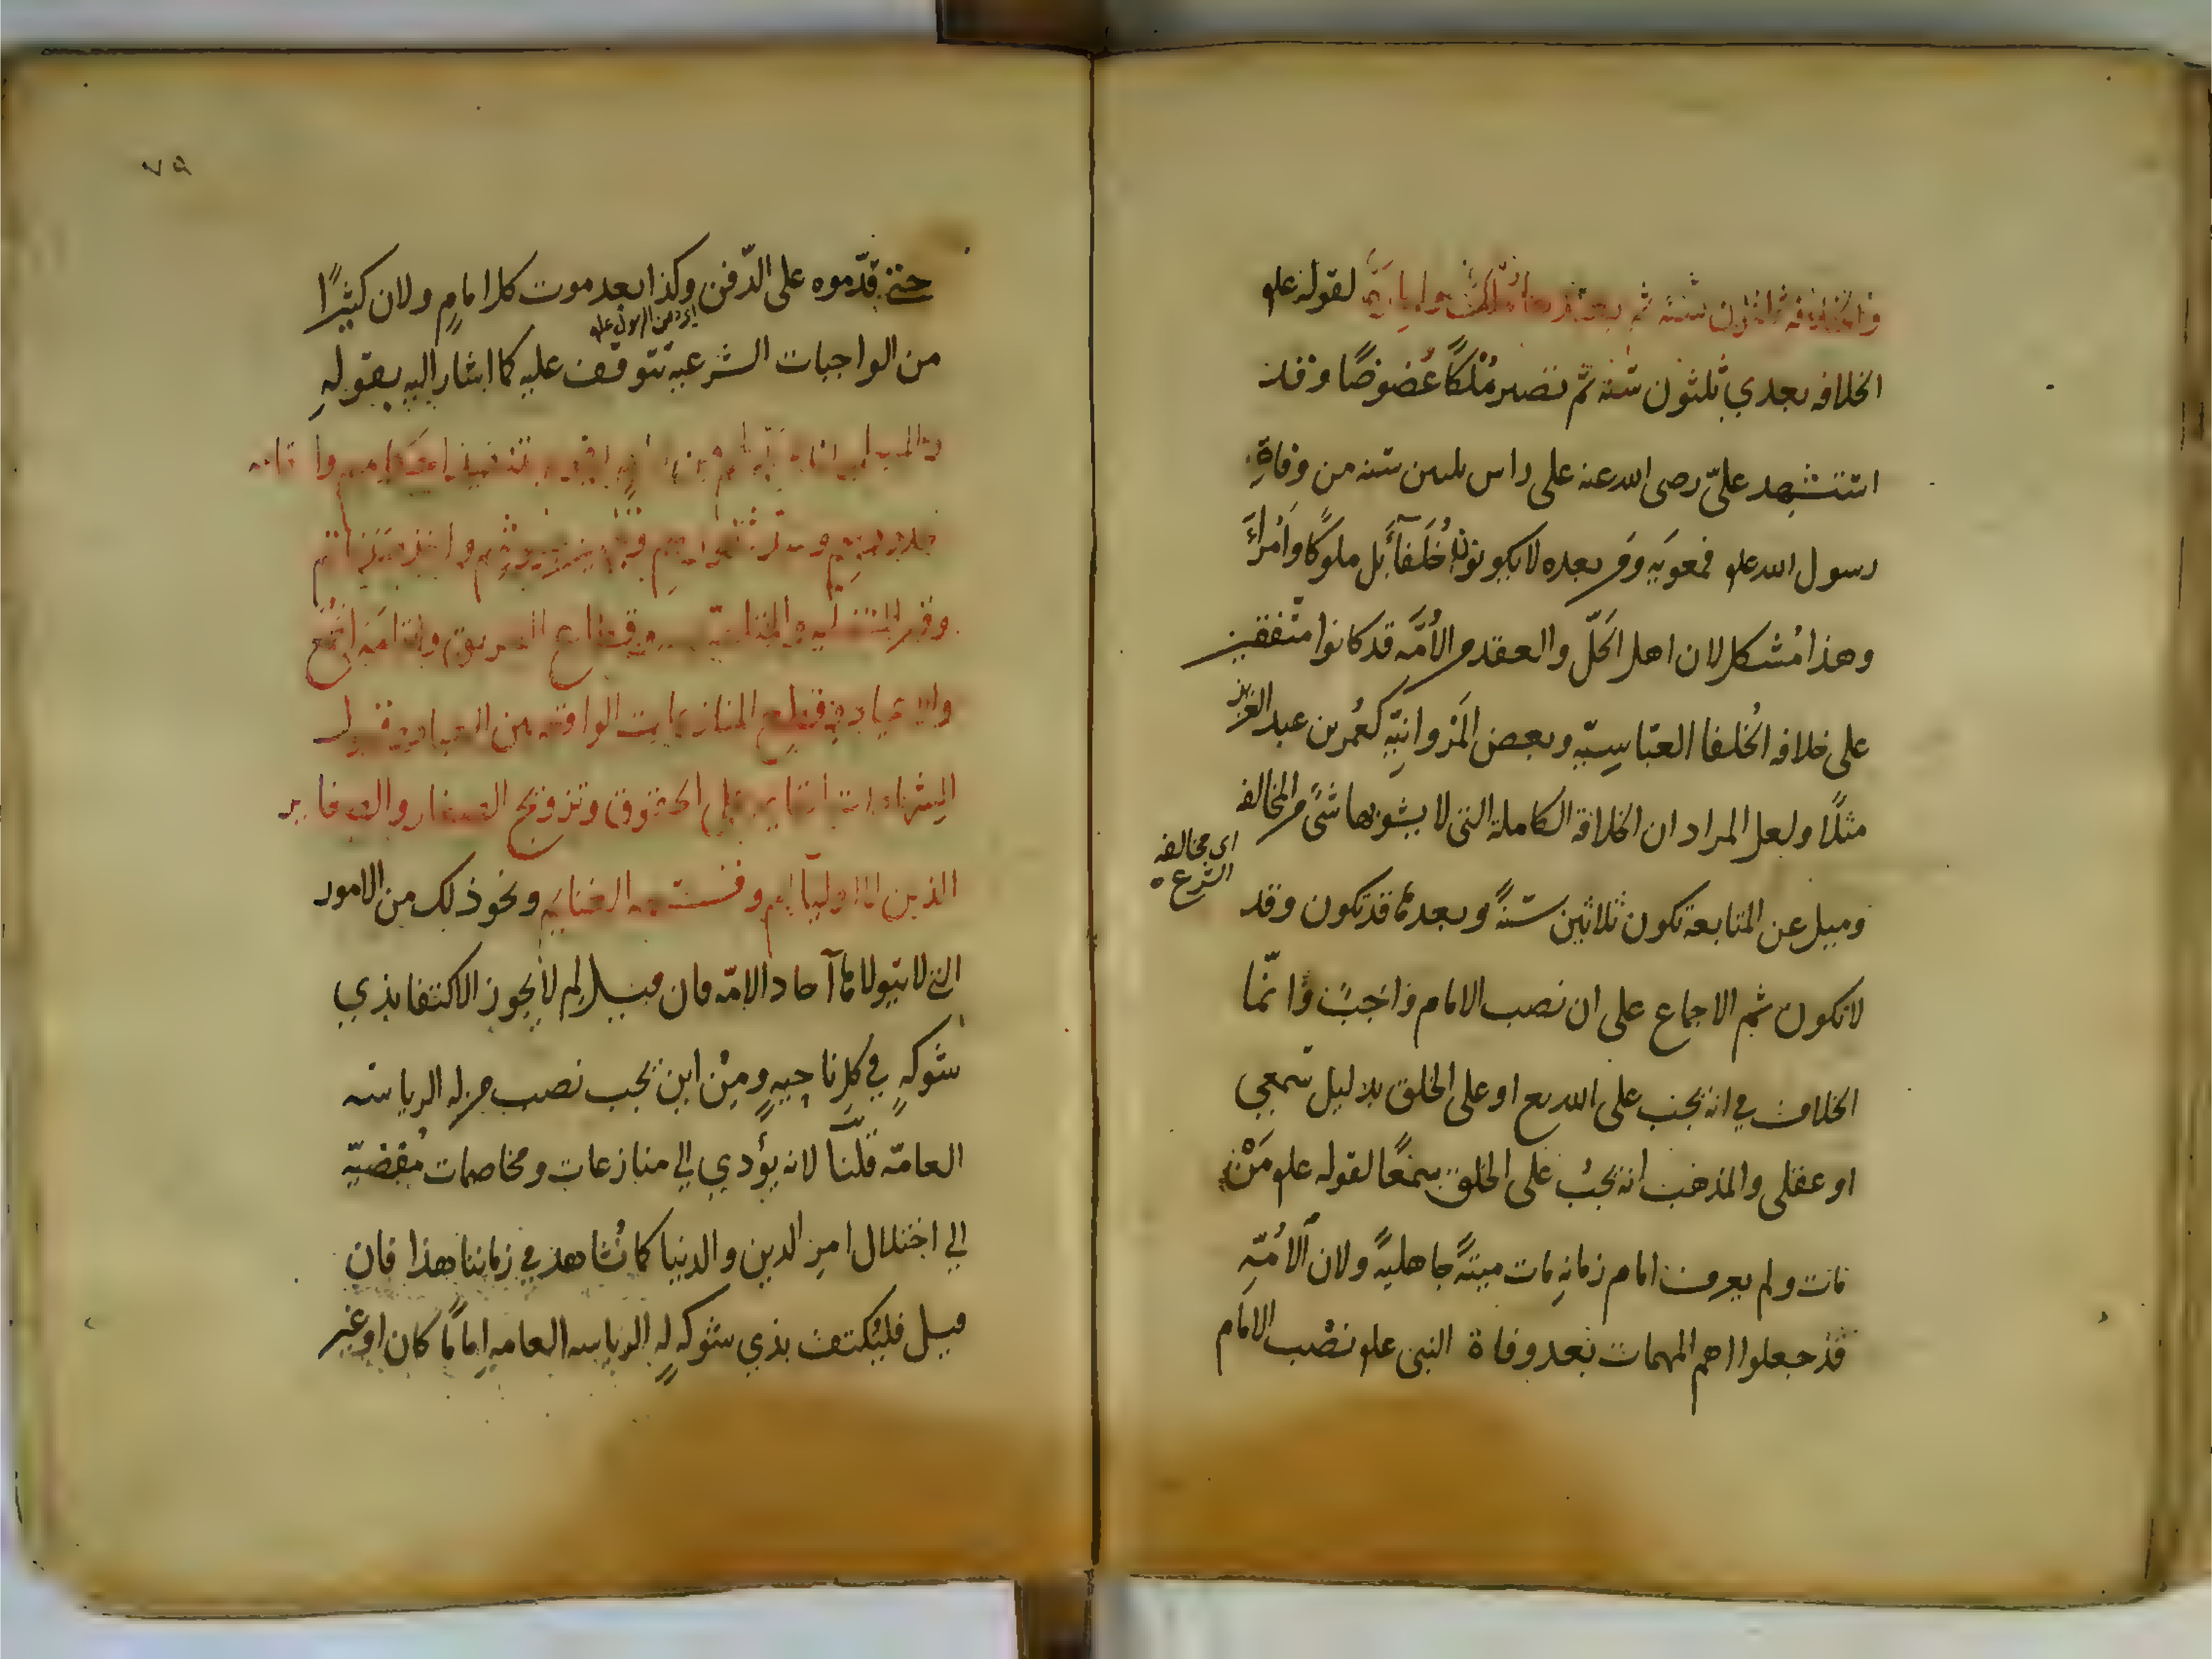 والخلافة ثلاثون سنة ثم بعدها ملك وامارة لقوله علم
الخلافه بعدي ثلثون سنه ثم تصير مُلكًا عَضوضًا وقد
استشهد عليّ رضى الله عنه على راس ثلثين سنه من وفاةِ
رسول الله علم فمعويَه ومَن بعده لا يكونون خُلَفَآءَ بل ملوكًا وأُمَراءَ
وهذا مُشكل لان اهل الحَلّ والعقد من الأُمَّه قد كانوا متفقين
على خلافه الخُلفا العبّاسِيّه وبعض المَرْوانيّهِ كعُمر بن عبد العزيز
مثلًا ولعل المراد ان الخلافة الكاملة التى لا يشوبها شىً من المخالفه
اى مخالفه
الشرع ه
وميل عن المتابعة تكون ثلاثين سنةً وبعدها قد تكون وقد
لا تكون ثم الاجماع على ان نصب الامام واجبٌ وانّما
الخلاف في انه يجب على الله تع او على الخلق بدليل سمعي
او عقلى والمذهب انه يجبُ على الخلق سمعًا لقوله علم مَنْ
مات ولم يعرف امام زمانهِ مات ميتةً جاهليةً ولان الأُمّهِ
قد جعلوا اهم المهمات بعد وفاة النبى علم نصْب الامام
٧٩
حتى قدّموه على الدّفن وكذا بعد موت كل امامٍ ولان كثيرًا
اى دفن الرسول علم
من الواجبات الشرعيه تتوقف عليه كما اشار اليه بقولهِ
والمسلمون لا بد لهم من امام يقوم بتنفيذ احكامهم واقامه
حدودهم وسد ثغورهم وتجهيز جيوشهم واخذ صدقاتهم
وقهر المتغلبه والمتلصصه وقطاع الطريق واقامة الجُمَع
والاعياد وقطع المنازعات الواقعه بين العباد وقبول
الشهادات القايمه على الحقوق وتزويج الصغار والصغاير
الذين لا اوليآ لهم وقسمه الغنايم ونحو ذلك من الامور
التى لا يتولاها آحاد الامّه فان قيل لِم لا يجوز الاكتفا بذي
شوكهٍ في كل ناحيهٍ ومِنْ اين يجب نصب من له الرياسه
العامّه قلنا لانه يؤدي الى منازعات ومخاصمات مُفضيّه
الى اختلال امرِ الدين والدنيا كما نُشاهد في زماننا هذا فان
قيل فليُكتف بذي شوكه له الرياسه العامه اِمامًا كان او غير